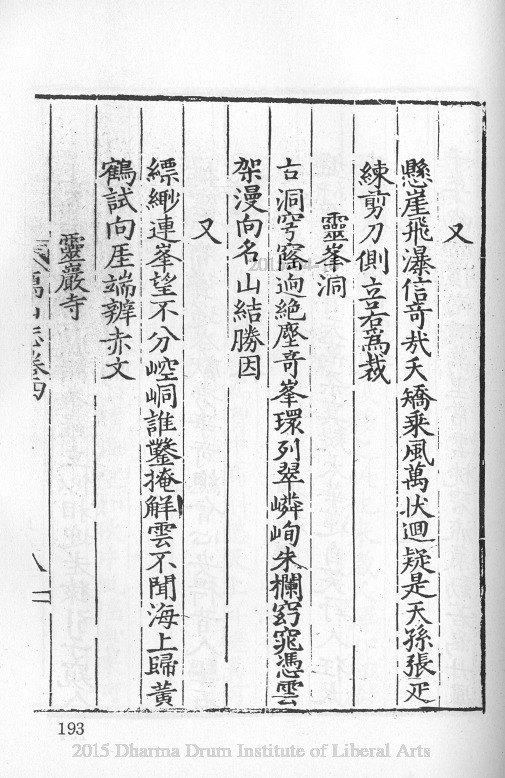 又
懸崖飛瀑信奇㢤夭矯乘風萬伏迴疑是天孫張疋
練剪刀側立若爲裁
靈峯洞
古洞穹窿逈絶塵奇峯環列翠嶙峋朱欄窈窕憑雲
架漫向名山結勝因
又
縹緲連峯望不分崆峒誰鑿掩觧雲不聞海上歸黄
鶴試向厓端辨赤文
靈巖寺
山志卷四
八
193
2015 Dharma Drum Institute of Liberal Arts